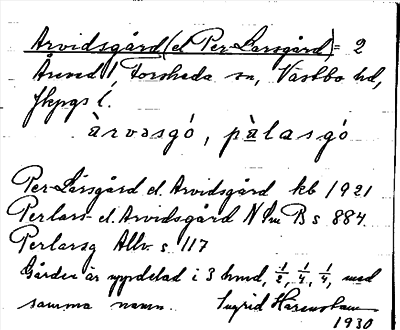 Arvidsgård (el Per-Larsgård) = 2
Åminne, Forsheda sn, Västbo hd,
Jkpgs l.
àrvasgó, pàlasgó
Per-Larsgård el. Arvidsgård kb 1921
Perlars- el. Arvidsgård N Sm B s 884.
Perlarsg Allv. s 117
Gården är uppdelad i 3 hmd, 1/2, 1/4, 1/4, med
samma namn. Ingrid
1930